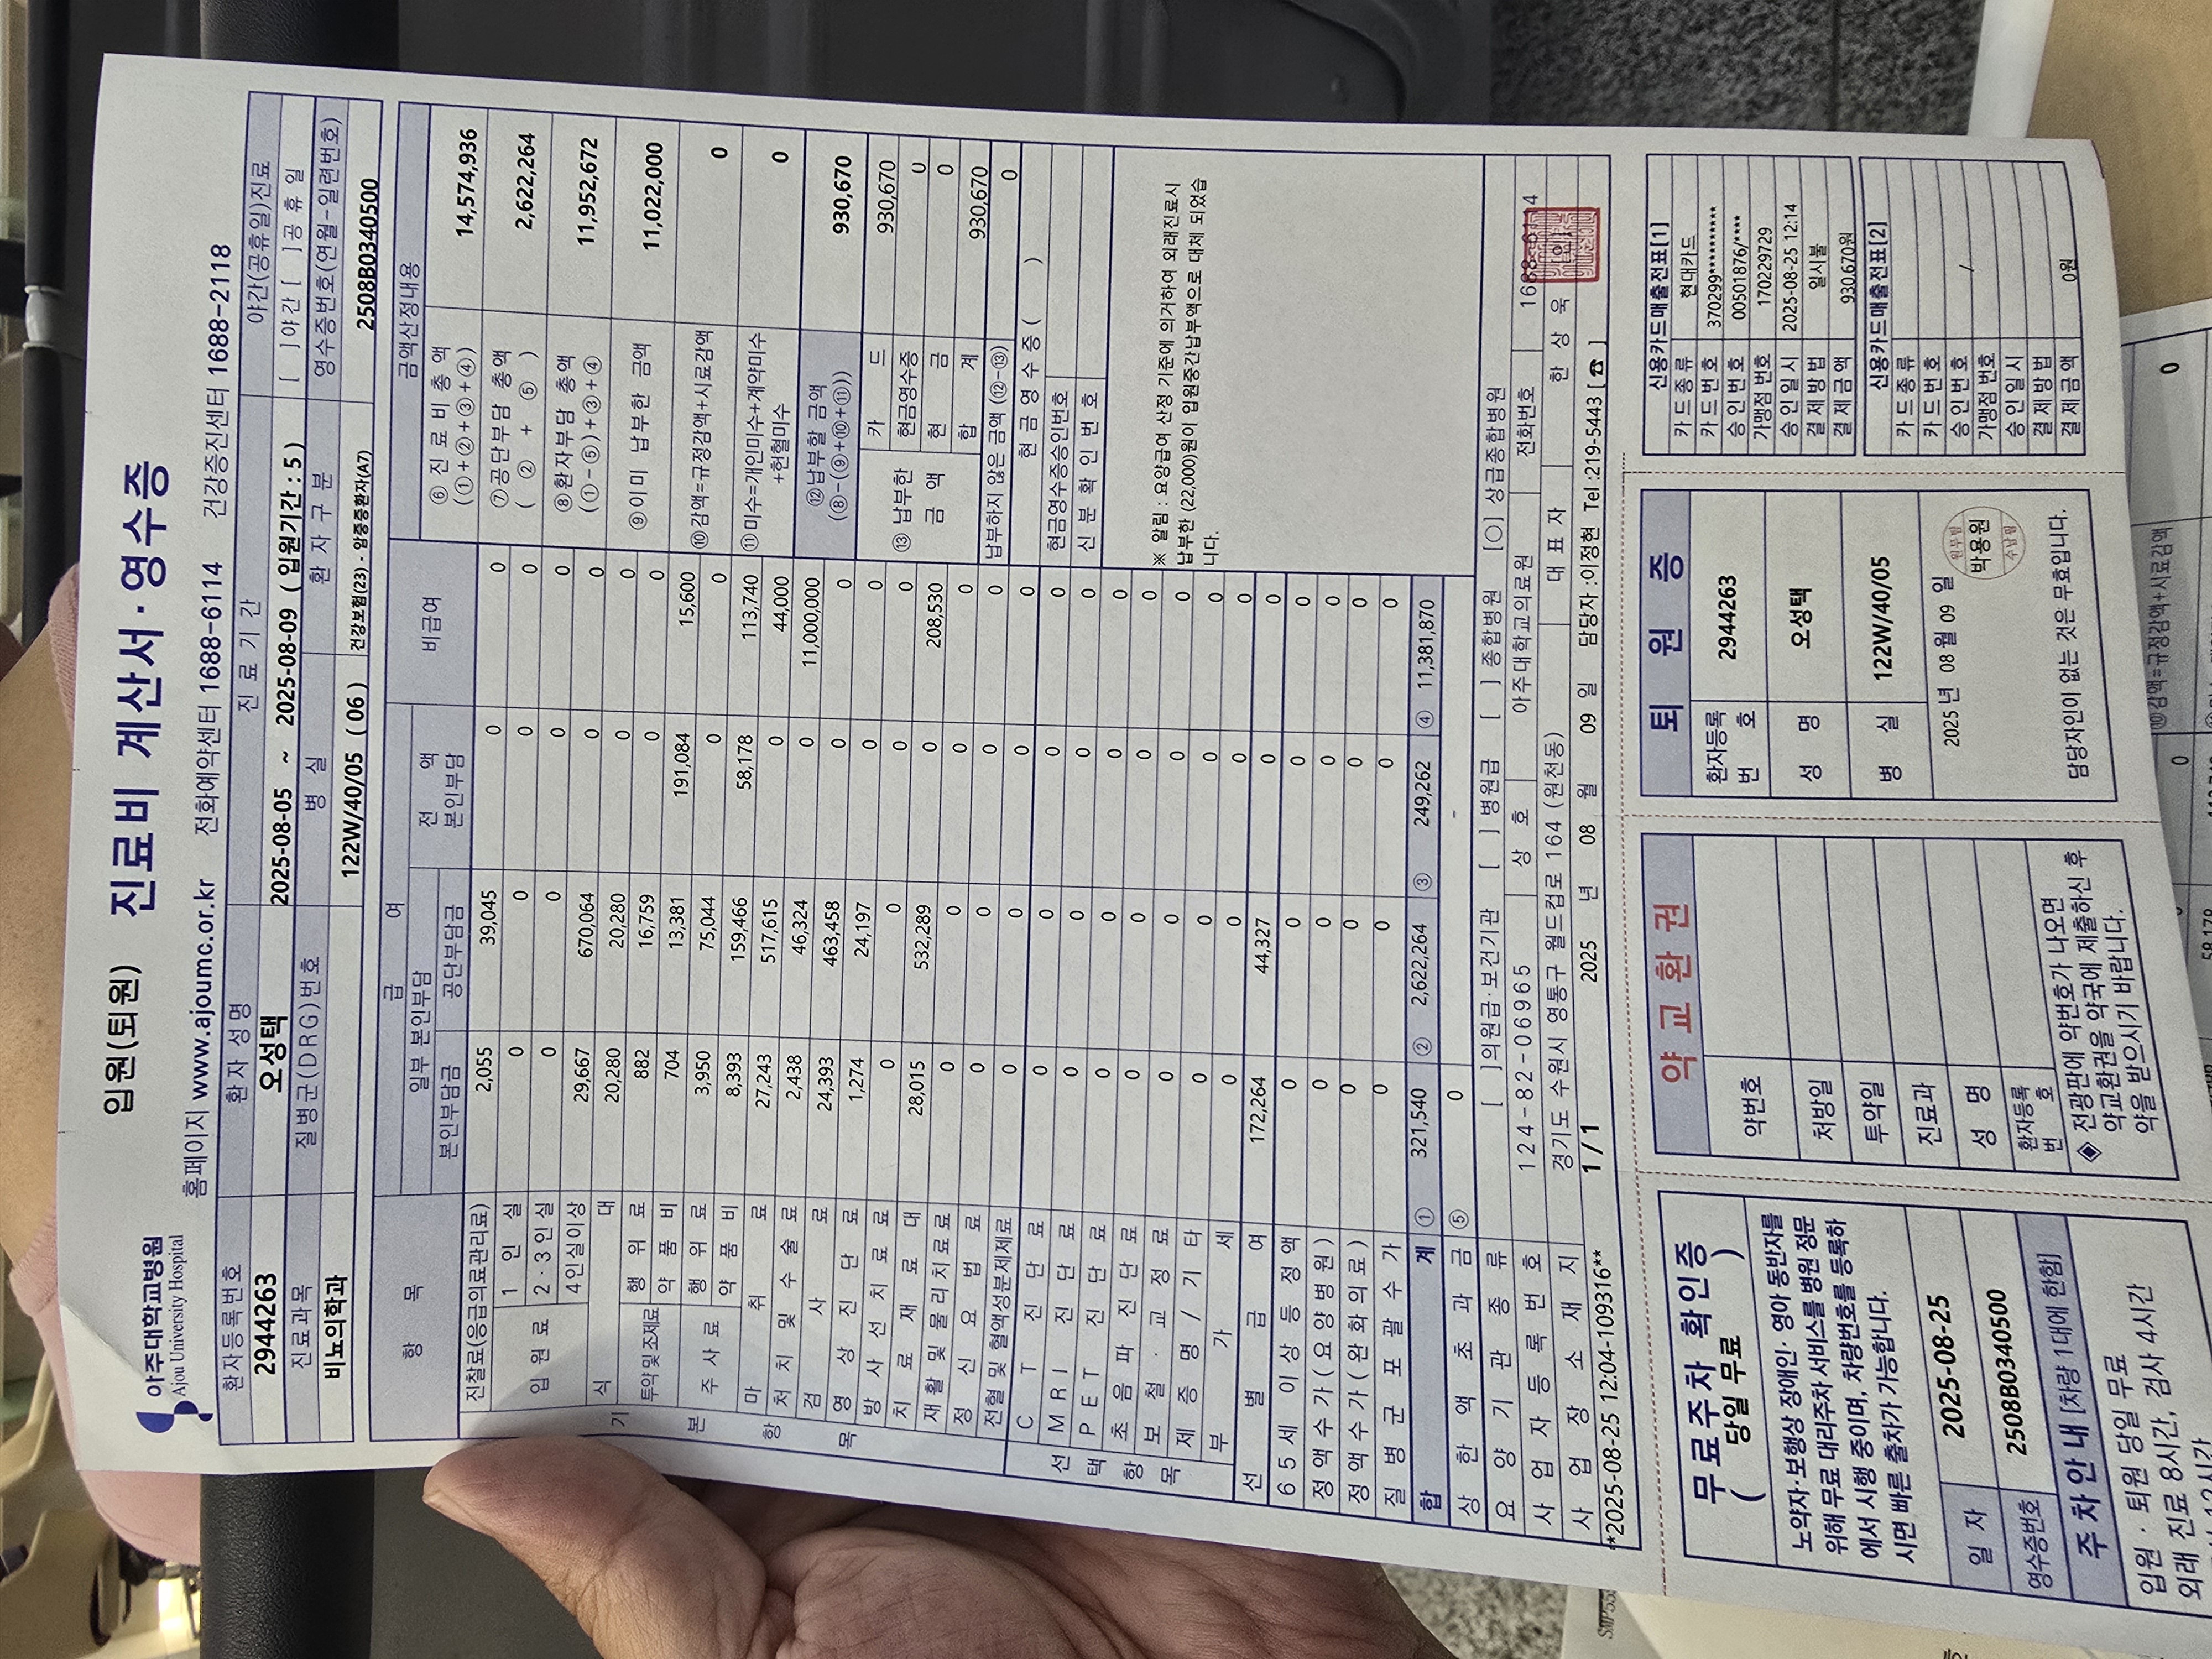 아주대학교병원
Ajou University Hospital
입원(퇴원) 진료비 계산서·영수증
홈페이지 www.ajoumc.or.kr 전화예약센터 1688-6114 건강증진센터 1688-2118
환자등록번호 환자 성명 진료기간 야간(공휴일)진료
2944263 오성택 2025-08-05 ~ 2025-08-09 ( 입원기간 : 5 ) [ ]야간 [ ]공휴일
진료과목 질병군(DRG)번호 병실 환자구분 영수증번호(연월-일련번호)
비뇨의학과 122W/40/05 ( 06 ) 건강보험(23) - 암중증환자(A7) 2508B0340500
항목 급여 비급여 금액산정내용
일부 본인부담 전액 본인부담
본인부담금 공단부담금
기본항목
진찰료(응급의료관리료) 2,055 39,045 0 0
입원료 1인실 0 0 0 0
2·3인실 0 0 0 0
4인실이상 29,667 670,064 0 0
식대 20,280 20,280 0 0
투약및조제료 행위료 882 16,759 0 0
약품비 704 13,381 191,084 15,600
주사료 행위료 3,950 75,044 0 0
약품비 8,393 159,466 58,178 113,740
마취료 27,243 517,615 0 44,000
처치 및 수술료 2,438 46,324 0 11,000,000
검사료 24,393 463,458 0 0
영상진단료 1,274 24,197 0 0
방사선치료료 0 0 0 0
치료재료대 28,015 532,289 0 208,530
재활 및 물리치료료 0 0 0 0
정신요법료 0 0 0 0
전혈 및 혈액성분제제료 0 0 0 0
선택항목
CT 진단료 0 0 0 0
MRI 진단료 0 0 0 0
PET 진단료 0 0 0 0
초음파 진단료 0 0 0 0
보철·교정료 0 0 0 0
제증명/기타 0 0 0 0
부가세 0 0 0 0
선별급여 172,264 44,327 0 0
65세 이상 등 정액 0 0 0 0
정액수가(요양병원) 0 0 0 0
정액수가(완화의료) 0 0 0 0
질병군 포괄수가 0 0 0 0
합계 ① 321,540 ② 2,622,264 ③ 249,262 ④ 11,381,870
상한액 초과금 ⑤ 0 -
⑥ 진료비총액 (①+②+③+④) 14,574,936
⑦ 공단부담 총액 ( ② + ⑤ ) 2,622,264
⑧ 환자부담 총액 (①-⑤)+③+④ 11,952,672
⑨ 이미 납부한 금액 11,022,000
⑩감액=규정감액+시료감액 0
⑪미수=개인미수+계약미수+헌혈미수 0
⑫납부할 금액 (⑧-(⑨+⑩+⑪)) 930,670
⑬ 납부한 금액 카드 930,670
현금영수증 0
현금 0
합계 930,670
납부하지 않은 금액 (⑫-⑬) 0
현금영수증( )
현금영수증승인번호
신분확인번호
※ 알림 : 요양급여 산정 기준에 의거하여 외래진료시
납부한 (22,000원이 입원중간납부액으로 대체 되었습
니다.
요양기관종류 [ ]의원급·보건기관 [ ]병원급 [ ]종합병원 [○]상급종합병원
사업자등록번호 124-82-06965 상호 아주대학교의료원 전화번호 1688-6114
사업장소재지 경기도 수원시 영통구 월드컵로 164 (원천동) 대표자 한상욱 인
**2025-08-25 12:04-109316** 1 / 1 2025 년 08 월 09 일 담당자 :이정현 Tel :219-5443 [☎ ]
무료주차 확인증
( 당일 무료 )
노약자·보행상 장애인·영아 동반자를
위해 무료 대리주차 서비스를 병원 정문
에서 시행 중이며, 차량번호를 등록하
시면 빠른 출차가 가능합니다.
일자 2025-08-25
영수증번호 2508B0340500
주차안내 [차량 1대에 한함]
입원 · 퇴원 당일 무료
외래 진료 8시간, 검사 4시간
약교환권
약번호
처방일
투약일
진료과
성명
환자등록번호
◈ 전광판에 약번호가 나오면
약교환권을 약국에 제출하신 후
약을 받으시기 바랍니다.
퇴원증
환자등록번호 2944263
성명 오성택
병실 122W/40/05
2025 년 08 월 09 일
원무팀 박용원 수납필
담당자인이 없는 것은 무효입니다.
신용카드매출전표[1]
카드종류 현대카드
카드번호 370299*********
승인번호 00501876/****
가맹점번호 170229729
승인일시 2025-08-25 12:14
결제방법 일시불
결제금액 930,670원
신용카드매출전표[2]
카드종류
카드번호
승인번호 /
가맹점번호
승인일시
결제방법
결제금액 0원
⑩감액=규정감액+시료감액 0
0
58,178